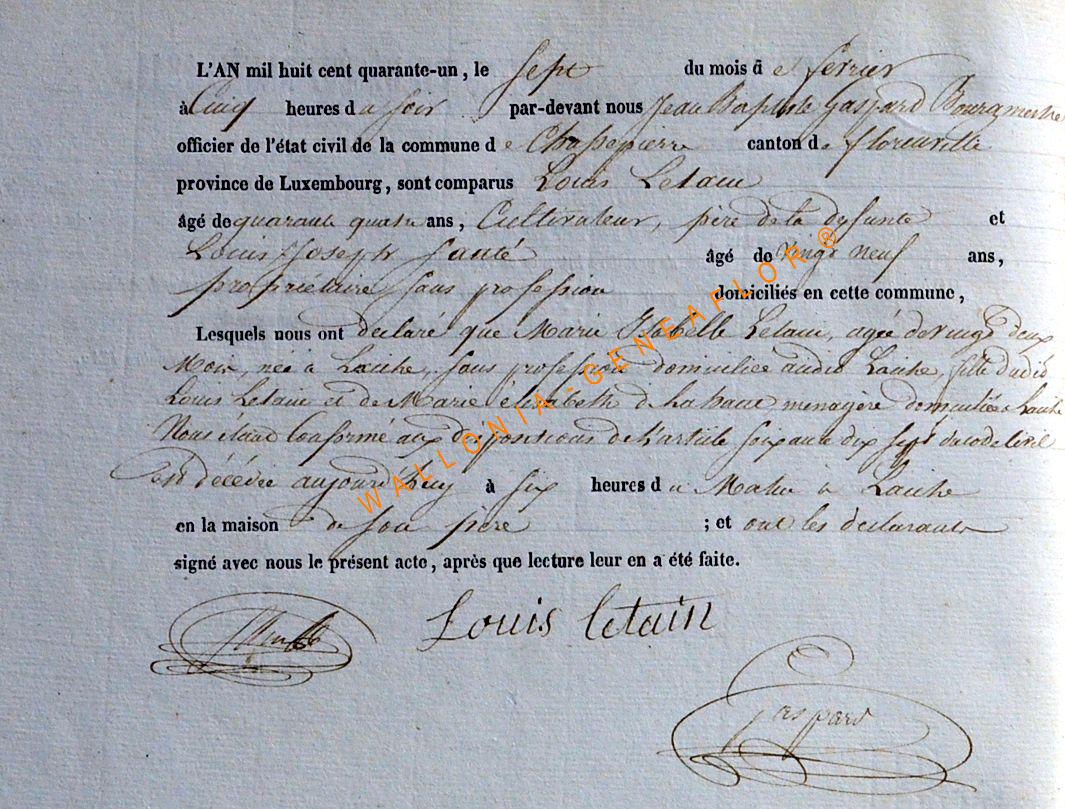 L'AN mil huit cent quarante-un, le Sept du mois de février
à Cinq heures du soir par-devant nous Jean Baptiste Gaspard Bourgmestre
officier de l'état civil de la commune de Chassepierre canton de florenville
province de Luxembourg, sont comparus Louis Letain
âgé de quarante quatre ans, Cultivateur, père de la defunte et
Louis Joseph âgé de vingt neuf ans,
propriétaire sans profession domiciliés en cette commune,
Lesquels nous ont declaré que Marie Isabelle Letain, agée de vingt deux
Mois, née à Laiche, sans profession domiciliée audit Laiche, fille dudit
Louis Letain et de Marie élizabeth menagère domiciliée à Laiche
Nous étant Conformé aux dispositions de l'article soixante dix sept du code Civil
est décédée aujourd'huy à six heures du Matin à Laiche
en la maison de son père ; et ont les declarants
signé avec nous le présent acte, après que lecture leur en a été faite.
Louis letain
Gaspard
WALLONIA-GENEAFLOR®